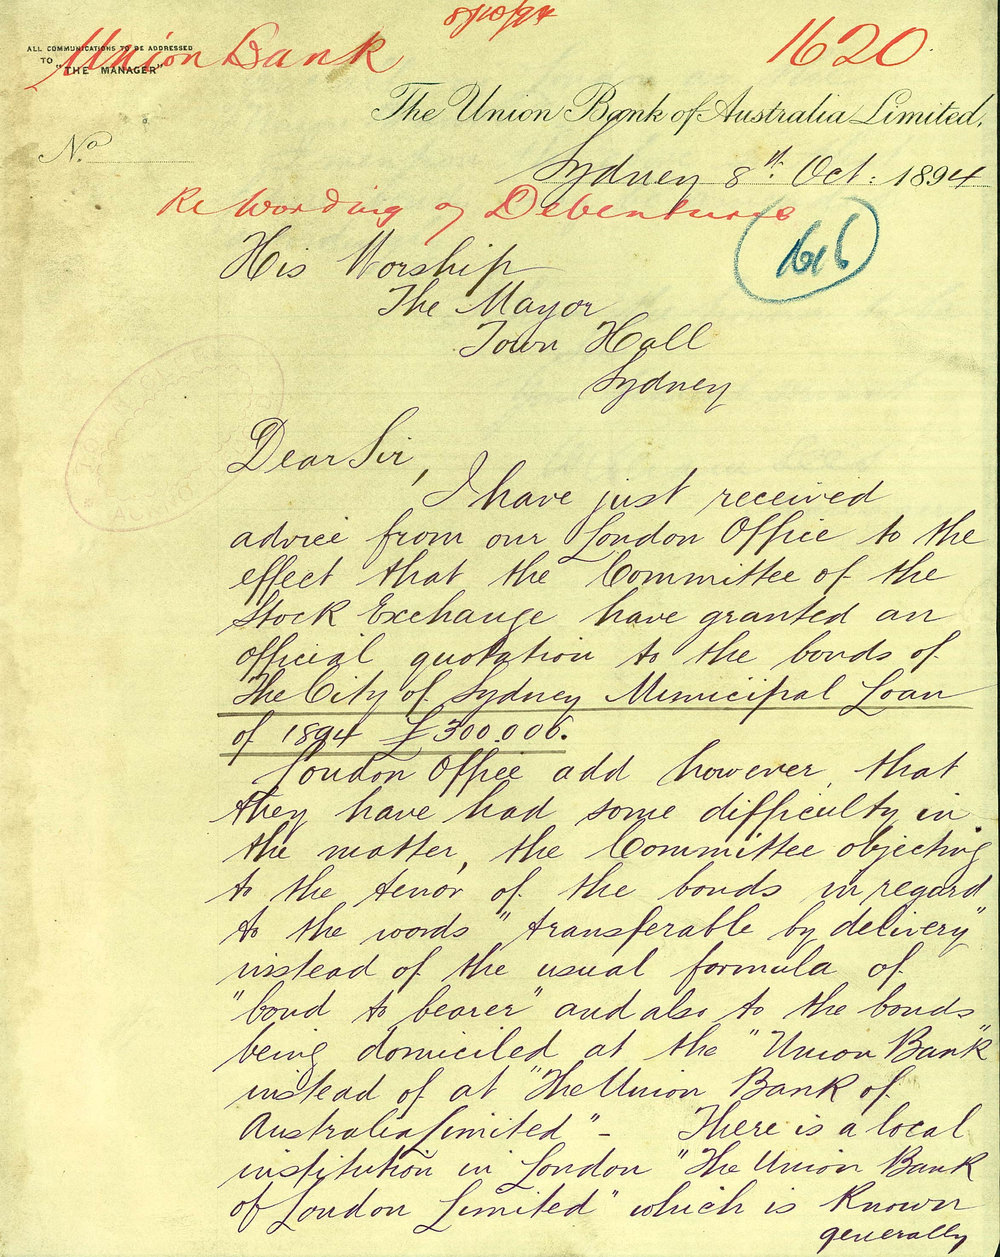 8/10/94
Union Bank
1620
ALL COMMUNICATIONS TO BE ADDRESSED
TO "THE MANAGER"
The Union Bank of Australia Limited,
No
Sydney 8th Oct: 1894
Re Wording of Debentures
616
His Worship
The Mayor
Town Hall
Sydney
Dear Sir,
I have just received
advice from our London Office to the
effect that the Committee of the
Stock Exchange have granted an
official quotation to the bonds of
The City of Sydney Municipal Loan
of 1894 £300.000.
London Office add however, that
they have had some difficulty in
the matter, the Committee objecting
to the tenor of the bonds in regard
to the words "transferable by delivery"
instead of the usual formula of
"bond to bearer" and also to the bonds
being domiciled at the "Union Bank"
instead of at "The Union Bank of
Australia Limited" – There is a local
institution in London "The Union Bank
of London Limited" which is known
generally